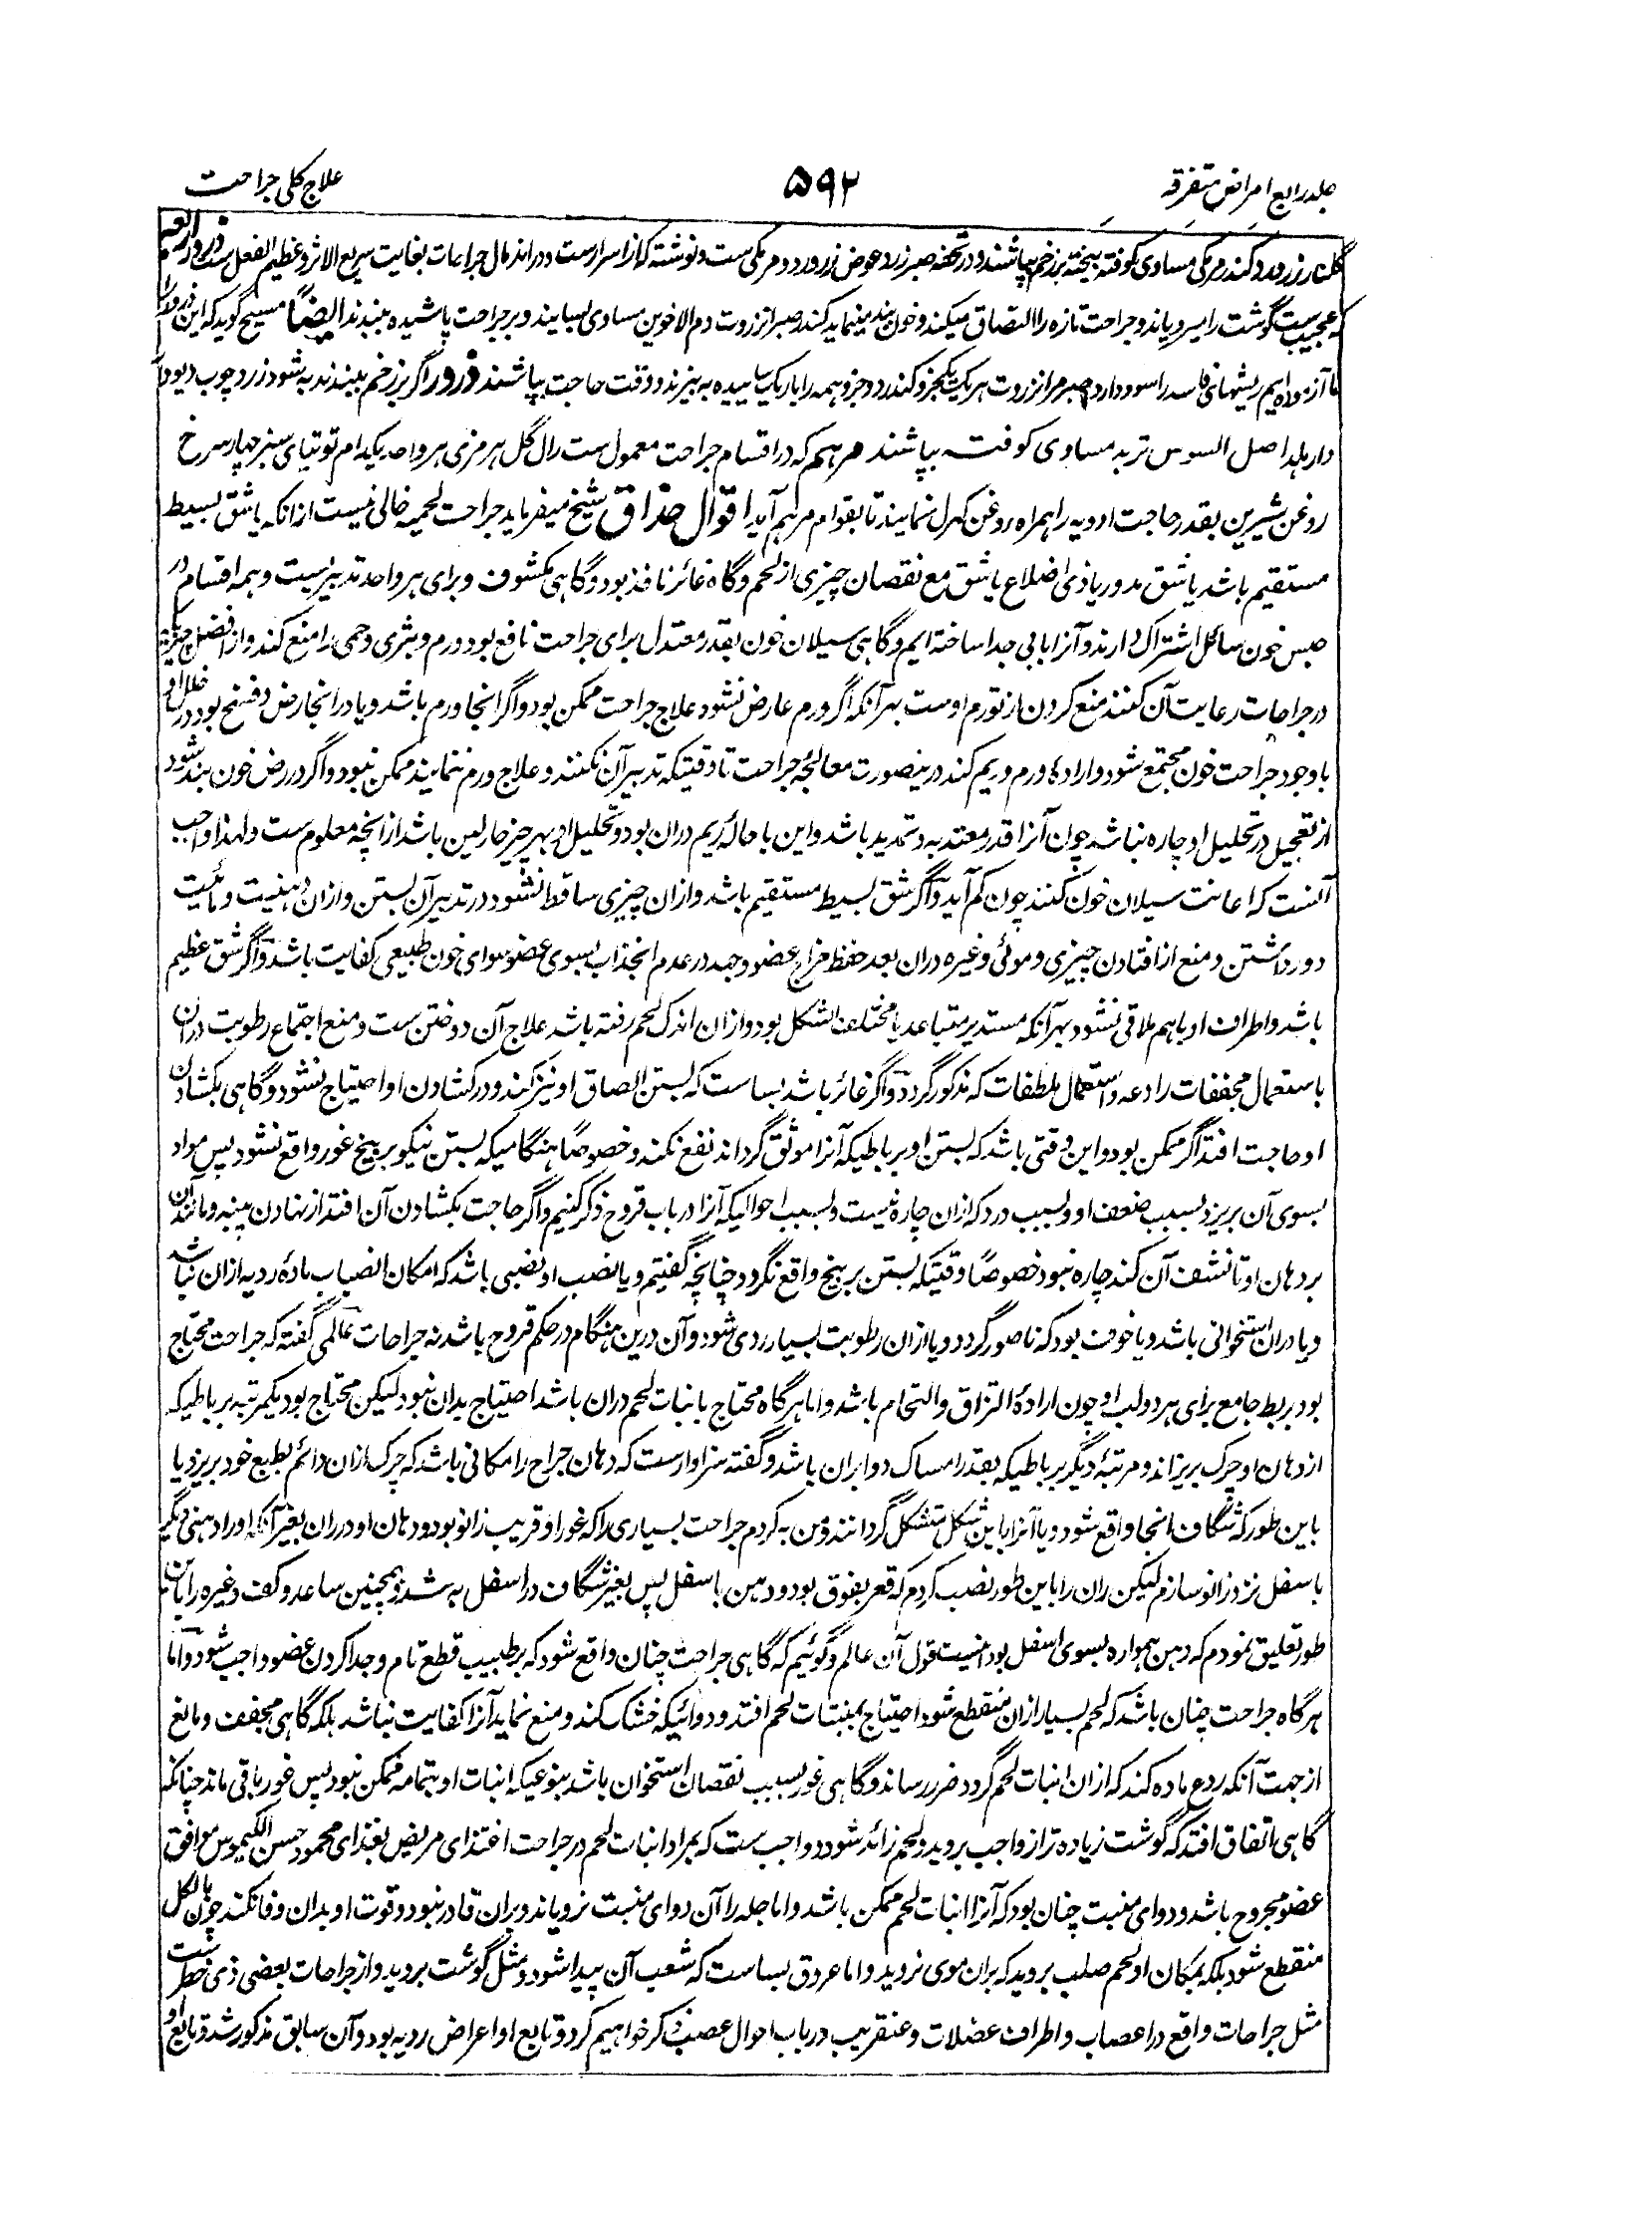 جلد رابع امراض متفرقه
۵۹۲
علاج کلی جراحت
گلنار زرورد کندر مرمکی مساوی کوفته بیخته بر زخم بپاشند و در تحفه صبر زرد عوض زرورد و مرمکی ست و نوشته که از اسرارست و در اندمال جراحات بغایت سریع الاثر و عظیم الفعل ست ذرور
که عجیب ست گوشت را میرویاند و جراحت تازه را التصاق میکند و خون بند مینماید کندر صبر انزروت دم الاخوین مساوی بسایند و بر جراحت پاشیده ببندند ایضاً مسیح گوید که این ذرور را
ما آزموده ایم ریشهای فاسد را سود دارد صبر مر انزروت هر یک یکجزو کندر دو جزو همه را باریک ساییده به بیزند و وقت حاجت بپاشند ذرور اگر بر زخم ببندند به شود زرد چوب دیودار
دار هلد اصل السوس تربد مساوی کوفته بپاشند مرهم که در اقسام جراحت معمول ست رال گل هرمزی هر واحد یکدام توتیای سبز چهار سرخ
روغن شیرین بقدر حاجت ادویه را همراه روغن کهرل نمایند تا بقوام مرهم آید اقوال حذاق شیخ میفرماید جراحت لحمیه خالی نیست از انکه یا شق بسیط
مستقیم باشد یا شق مدور یا ذی اضلاع یا شق مع نقصان چیزی از لحم و گاه غائر نافذ بود و گاهی مکشوف و برای هر واحد تدبیریست و همه اقسام در
حبس خون سائل اشتراک دارند و آنرا بابی جدا ساخته ایم و گاهی سیلان خون بقدر معتدل برای جراحت نافع بود ورم و بثری و حمی را منع کند و از افضل چیزی که
در جراحات رعایت آن کنند منع کردن از تورم اوست بهر آنکه اگر ورم عارض نشود علاج جراحت ممکن بود و اگر انجا ورم باشد و یا در انجا رض و فسخ بود در خلل او
با وجود جراحت خون مجتمع شود و اراده ورم و ریم کند درینصورت معالجه جراحت تا وقتیکه تدبیر آن نکنند و علاج ورم ننمایند ممکن نبود و اگر در رض خون بند شود
از تعجیل در تحلیل او چاره نباشد چون آنرا قدر معتد به و تمدید باشد و این باحاله ریم دران بود و تحلیل او بهر چیز حار لین باشد از انچه معلوم ست و لهذا واجب
آنست که اعانت سیلان خون کنند چون کم آید و اگر شق بسیط مستقیم باشد و ازان چیزی ساقط نشود در تدبیر آن بستن و ازان دهنیت و مائیت
دور داشتن و منع از افتادن چیزی و موئی و غیره دران بعد حفظ مزاج عضو و جهد در عدم انجذاب بسوی عضو سوای خون طبیعی کفایت باشد و اگر شق عظیم
باشد و اطراف او باهم ملاقی نشود بهر آنکه مستدیر متباعد یا مختلف الشکل بود و ازان اندک لحم رفته باشد علاج آن دوختن ست و منع اجتماع رطوبت دران
باستعمال مجففات رادعه و استعمال ملطفات که مذکور گردد و اگر غائر باشد بسا ست که بستن الصاق او نیز کند و در کشادن او احتیاج نشود و گاهی بکشادن
او حاجت افتد اگر ممکن بود و این وقتی باشد که بستن او برباطیکه آنرا موثق گرداند نفع نکند و خصوصاً هنگامیکه بستن نیکو بر بیخ غور واقع نشود پس مواد
بسوی آن بریزد بسبب ضعف او و بسبب درد که ازان چاره نیست و بسبب احوالیکه آنرا در باب قروح ذکر کنیم و اگر حاجت بکشادن آن افتد از نهادن پنبه و مانند آن
بر دهان او تا نشف آن کند چاره نبود خصوصاً وقتیکه بستن بر بیخ واقع نگردد چنانچه گفتیم و یا نصب او نصبی باشد که امکان انصباب ماده ردیه ازان نباشد
و یا دران استخوانی باشد و یا خوف بود که ناصور گردد و یا ازان رطوبت بسیار ردی شود و آن درین هنگام در حکم قروح باشد نه جراحات عالمی گفته که جراحت محتاج
بود بربط جامع برای هر دو لب او چون اراده التزاق و التحام باشد و اما هر گاه محتاج بانبات لحم دران باشد احتیاج بدان نبود لیکن محتاج بود یکمرتبه برباطیکه
از دهان او چرک بریزاند و مرتبه دیگر برباطیکه بقدر امساک دوا بران باشد و گفته سزاوارست که دهان جراح را مکانی باشد که چرک ازان دائم بطبع خود بریزد یا
باین طور که شگاف انجا واقع شود و یا آنرا باین شکل متشکل گردانند و من به کردم جراحت بسیاری را که غور او قریب زانو بود و دهان او در ران بغیر آنکه او را دهنی دیگر
باسفل نزد زانو سازم لیکن ران را باین طور نصب کردم که قعر بفوق بود و دهن باسفل پس بغیر شگاف در اسفل به شد و همچنین ساعد و کف و غیره را باین
طور تعلیق نمودم که دهن همواره بسوی اسفل بود اینست قول آن عالم و گوئیم که گاهی جراحت چنان واقع شود که بر طبیب قطع تام و جدا کردن عضو واجب شود و اما
هر گاه جراحت چنان باشد که لحم بسیار ازان منقطع شود احتیاج بمنبتات لحم افتد و دوائیکه خشک کند و منع نماید آنرا کفایت نباشد بلکه گاهی مجفف و مانع
از جهت آنکه ردع ماده کند که ازان انبات لحم گردد ضرر رساند و گاهی غور بسبب نقصان استخوان باشد بنوعیکه انبات او بتمامه ممکن نبود پس غور باقی ماند چنانکه
گاهی اتفاق افتد که گوشت زیاده تر از واجب بروید و لحم زائد شود و واجب ست که بمراد انبات لحم در جراحت اغتذای مریض بغذای محمود حسن الکیموس موافق
عضو مجروح باشد و دوای منبت چنان بود که آنرا انبات لحم ممکن باشد و اما جلد را آن دوای منبت نرویاند و بران قادر نبود و قوت او بدان وفا نکند چون بالکل
منقطع شود بلکه بمکان او لحم صلب بروید که بران موی نروید و اما عروق بسا ست که شعب آن پیدا شود و مثل گوشت بروید و از جراحات بعضی ذی خطر ست
مثل جراحات واقع در اعصاب و اطراف عضلات و عنقریب در باب احوال عصب ذکر خواهیم کرد و تابع او اعراض ردیه بود و آن سابق مذکور شد و تابع او